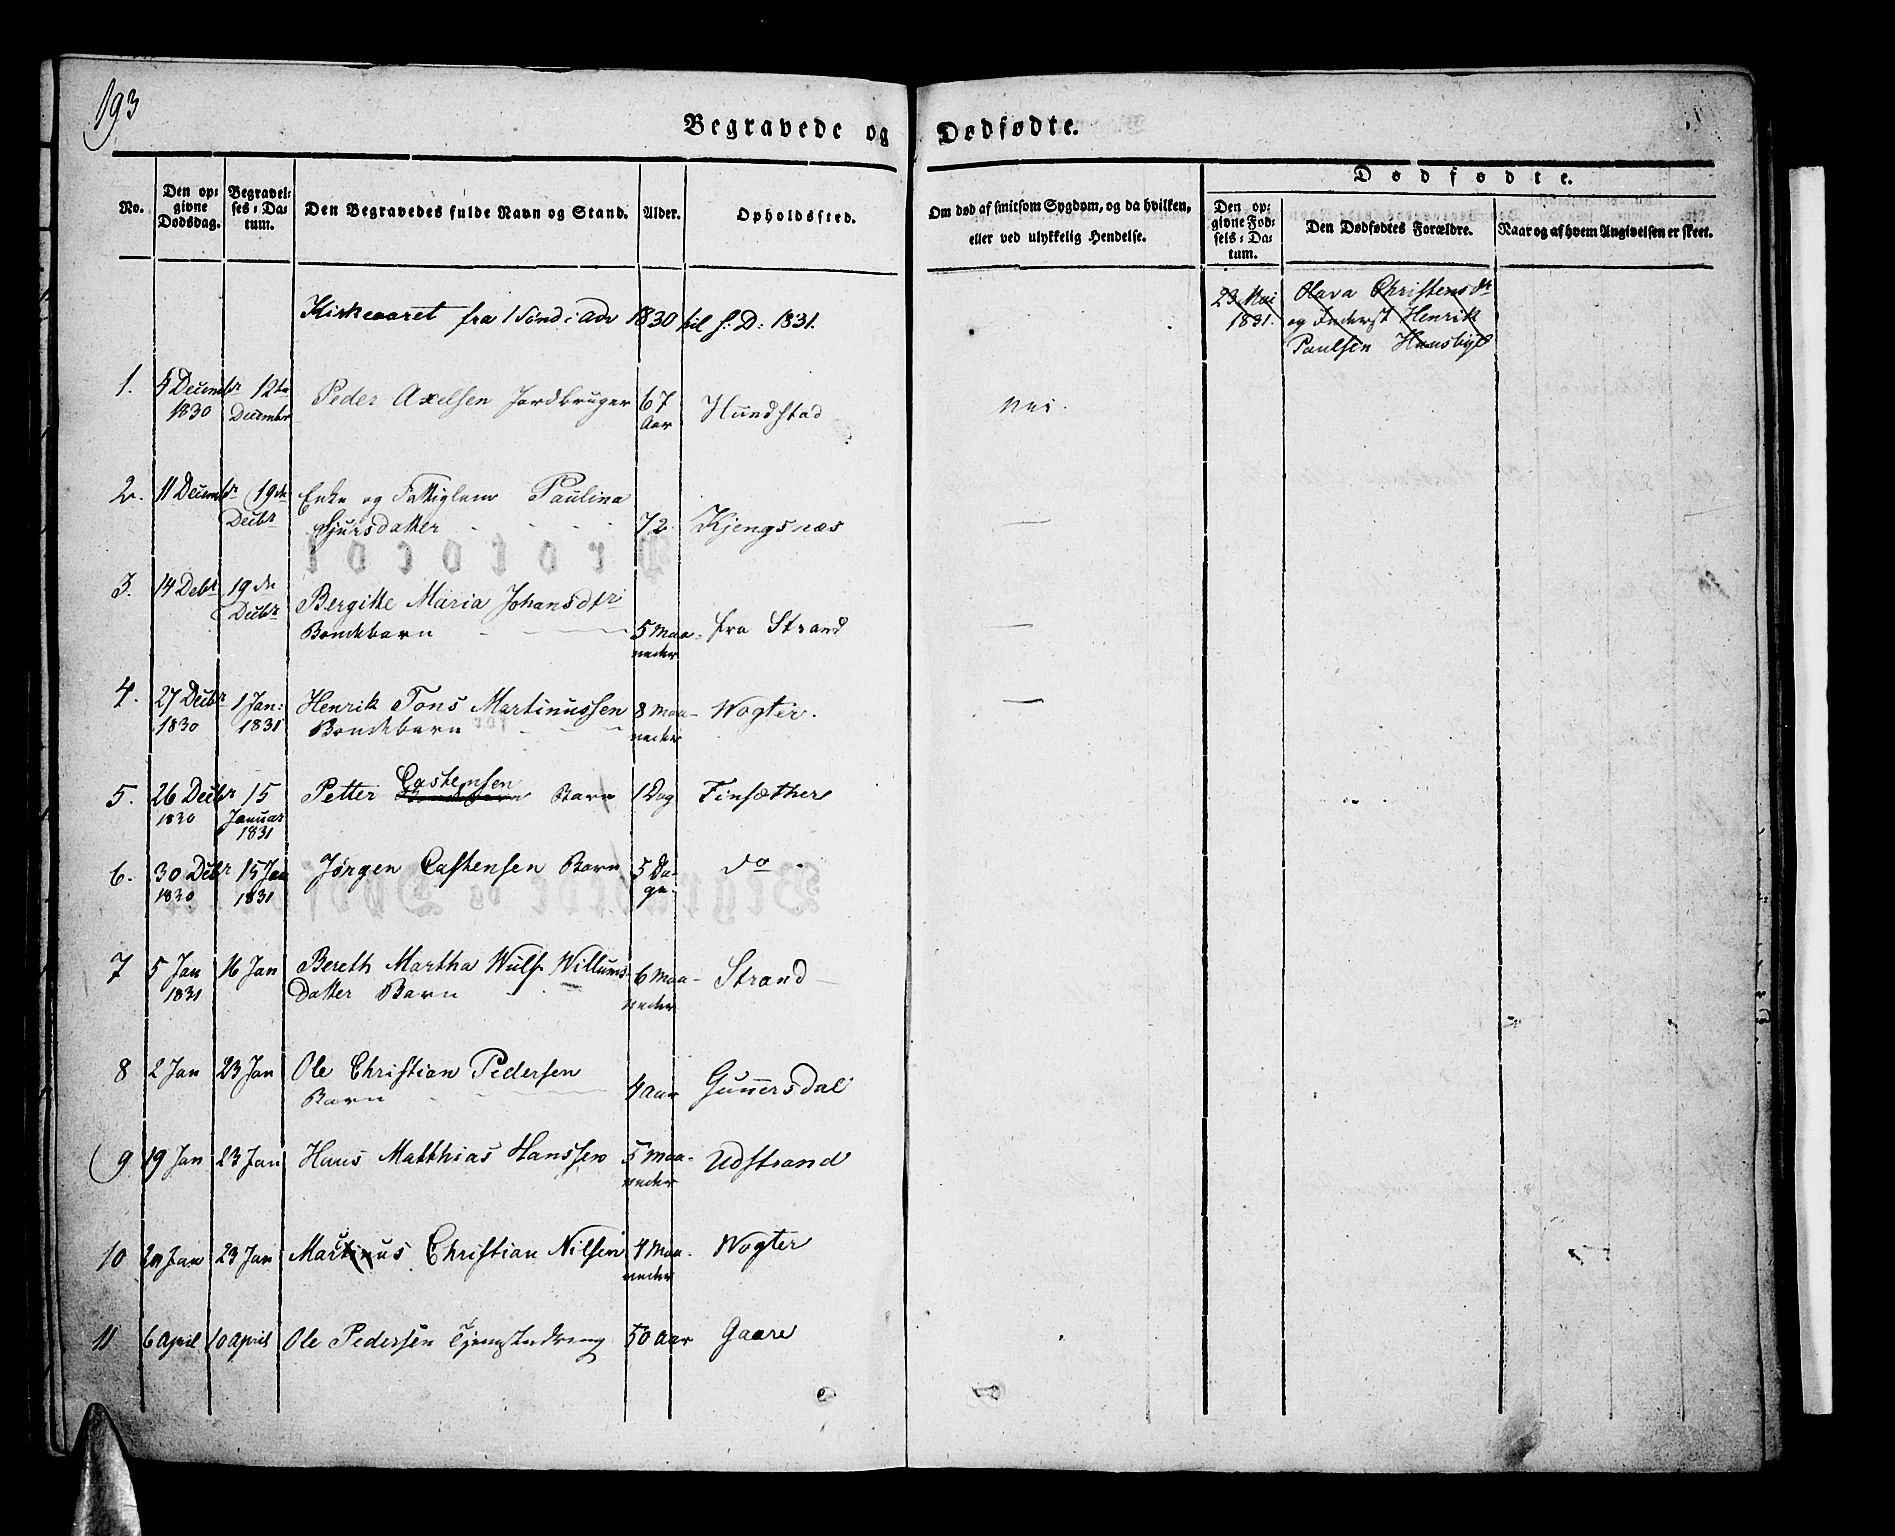 193
Begravede og Dødfødte.
No.
Den opgivne Dødsdag.
Begravelses-Datum.
Den Begravedes fulde Navn og Stand.
Alder.
Opholdssted.
Om død af smitsom Sygdom, og da hvilken,
eller ved ulykkelig Hendelse.
Dødfødte.
Den opgivne Fødsels-Datum.
Den Dødfødtes Forældre.
Naar og af hvem Angivelsen er skeet.
Kirkeaaret fra 1 Sønd: Adv 1830 til S: D: 1831.
23 Mai Olava Christensdr
1831. og Inderst Henrik
Paulsen
1. 5 Decembr 12te Peder Axelsen Jordbruger 67 Hundstad Nei.
1830 Decembr Aar
2. 11 Decembr 19de Enke og Fattiglem Paulina
Decbr Sjursdatter 72 Kjengsnæs —
3. 14 Decbr 19de Bergitte Maria Johansdtr
Decbr Bondebarn 5 Maa- fra Strand —
neder
4. 27 Decbr 1 Jan: Henrik Tons Martinussen 8 Maa- Wogter. —
1830 1831 Bondebarn neder
5. 26 Decbr 15 Petter Castensen Barn 1 Dag Finsæther
1830 Januar
1831
6. 30 Decbr 15 Jan Jørgen Castensen Barn 5 Da- do
1830 1831 ge
7 5 Jan 16 Jan Bereth Martha Wulf Willums- 6 Maa- Strand
1831 Datter Barn neder
8 2 Jan 23 Jan Ole Christian Pedersen
Barn 4 Aar Gunnersdal
9 19 Jan 23 Jan Hans Matthias Hanssen 5 Maa- Udstrand
neder
10 20 Jan 23 Jan Marcus Christian Nilsen 4 Maa- Wogter
neder
11 6 April 10 April Ole Pedersen Tjenestedreng 50 Aar Gaare